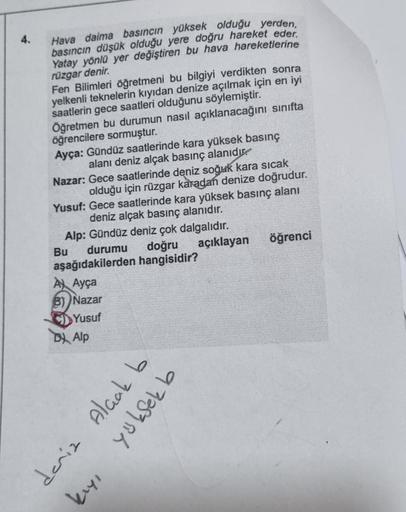 4. Hava daima basıncın yüksek olduğu yerden,
basıncın düşük olduğu yere doğru hareket eder.
Yatay yönlü yer değiştiren bu hava hareketlerine
rüzgar denir.
Fen Bilimleri öğretmeni bu bilgiyi verdikten sonra
yelkenli teknelerin kıyıdan denize açılmak için en iyi
saatlerin gece saatleri olduğunu söylemiştir.
Öğretmen bu durumun nasıl açıklanacağını sınıfta
öğrencilere sormuştur.
Ayça: Gündüz saatlerinde kara yüksek basınç
alanı deniz alçak basınç alanıdır.
Nazar: Gece saatlerinde deniz soğuk kara sıcak
olduğu için rüzgar karadan denize doğrudur.
Yusuf: Gece saatlerinde kara yüksek basınç alanı
deniz alçak basınç alanıdır.
Alp: Gündüz deniz çok dalgalıdır.
Bu durumu doğru açıklayan öğrenci
aşağıdakilerden hangisidir?
A) Ayça
B) Nazar
C) Yusuf
D) Alp
deniz Alçak b
kıyı yüksek b